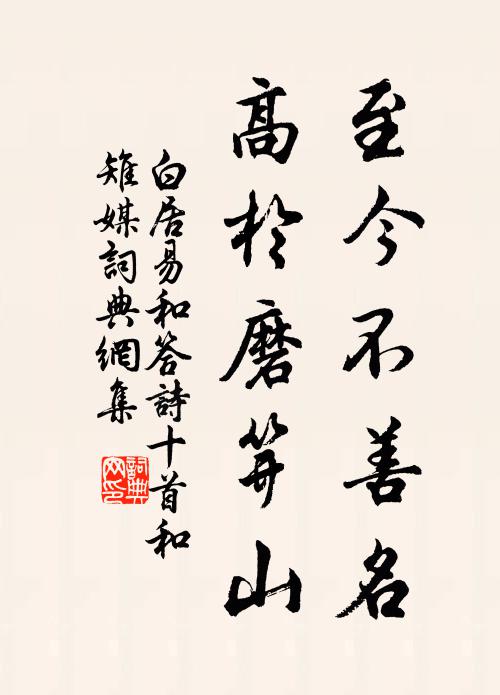 至今不善名
高於磨笄山
白居易和答詩十首和
雉媒詞典網集
詞典網印